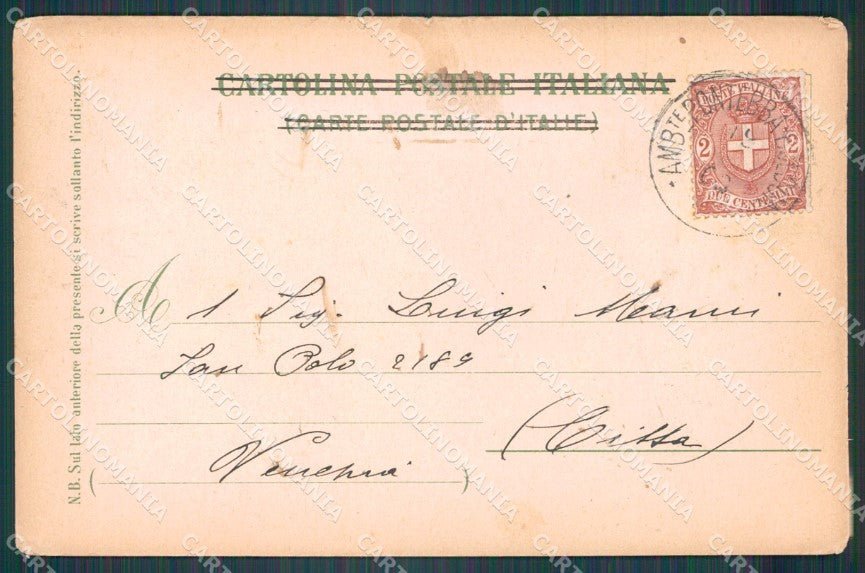 CARTOLINA POSTALE ITALIANA
(CARTE POSTALE D'ITALIE)
POSTE ITALIANE
2 2
DUE CENTESIMI
A l Sig. Luigi
San Polo 2189
(Citta)
( Venezia )
N.B. Sul lato anteriore della presente si scrive soltanto l'indirizzo.
CARTOLINOMANIA